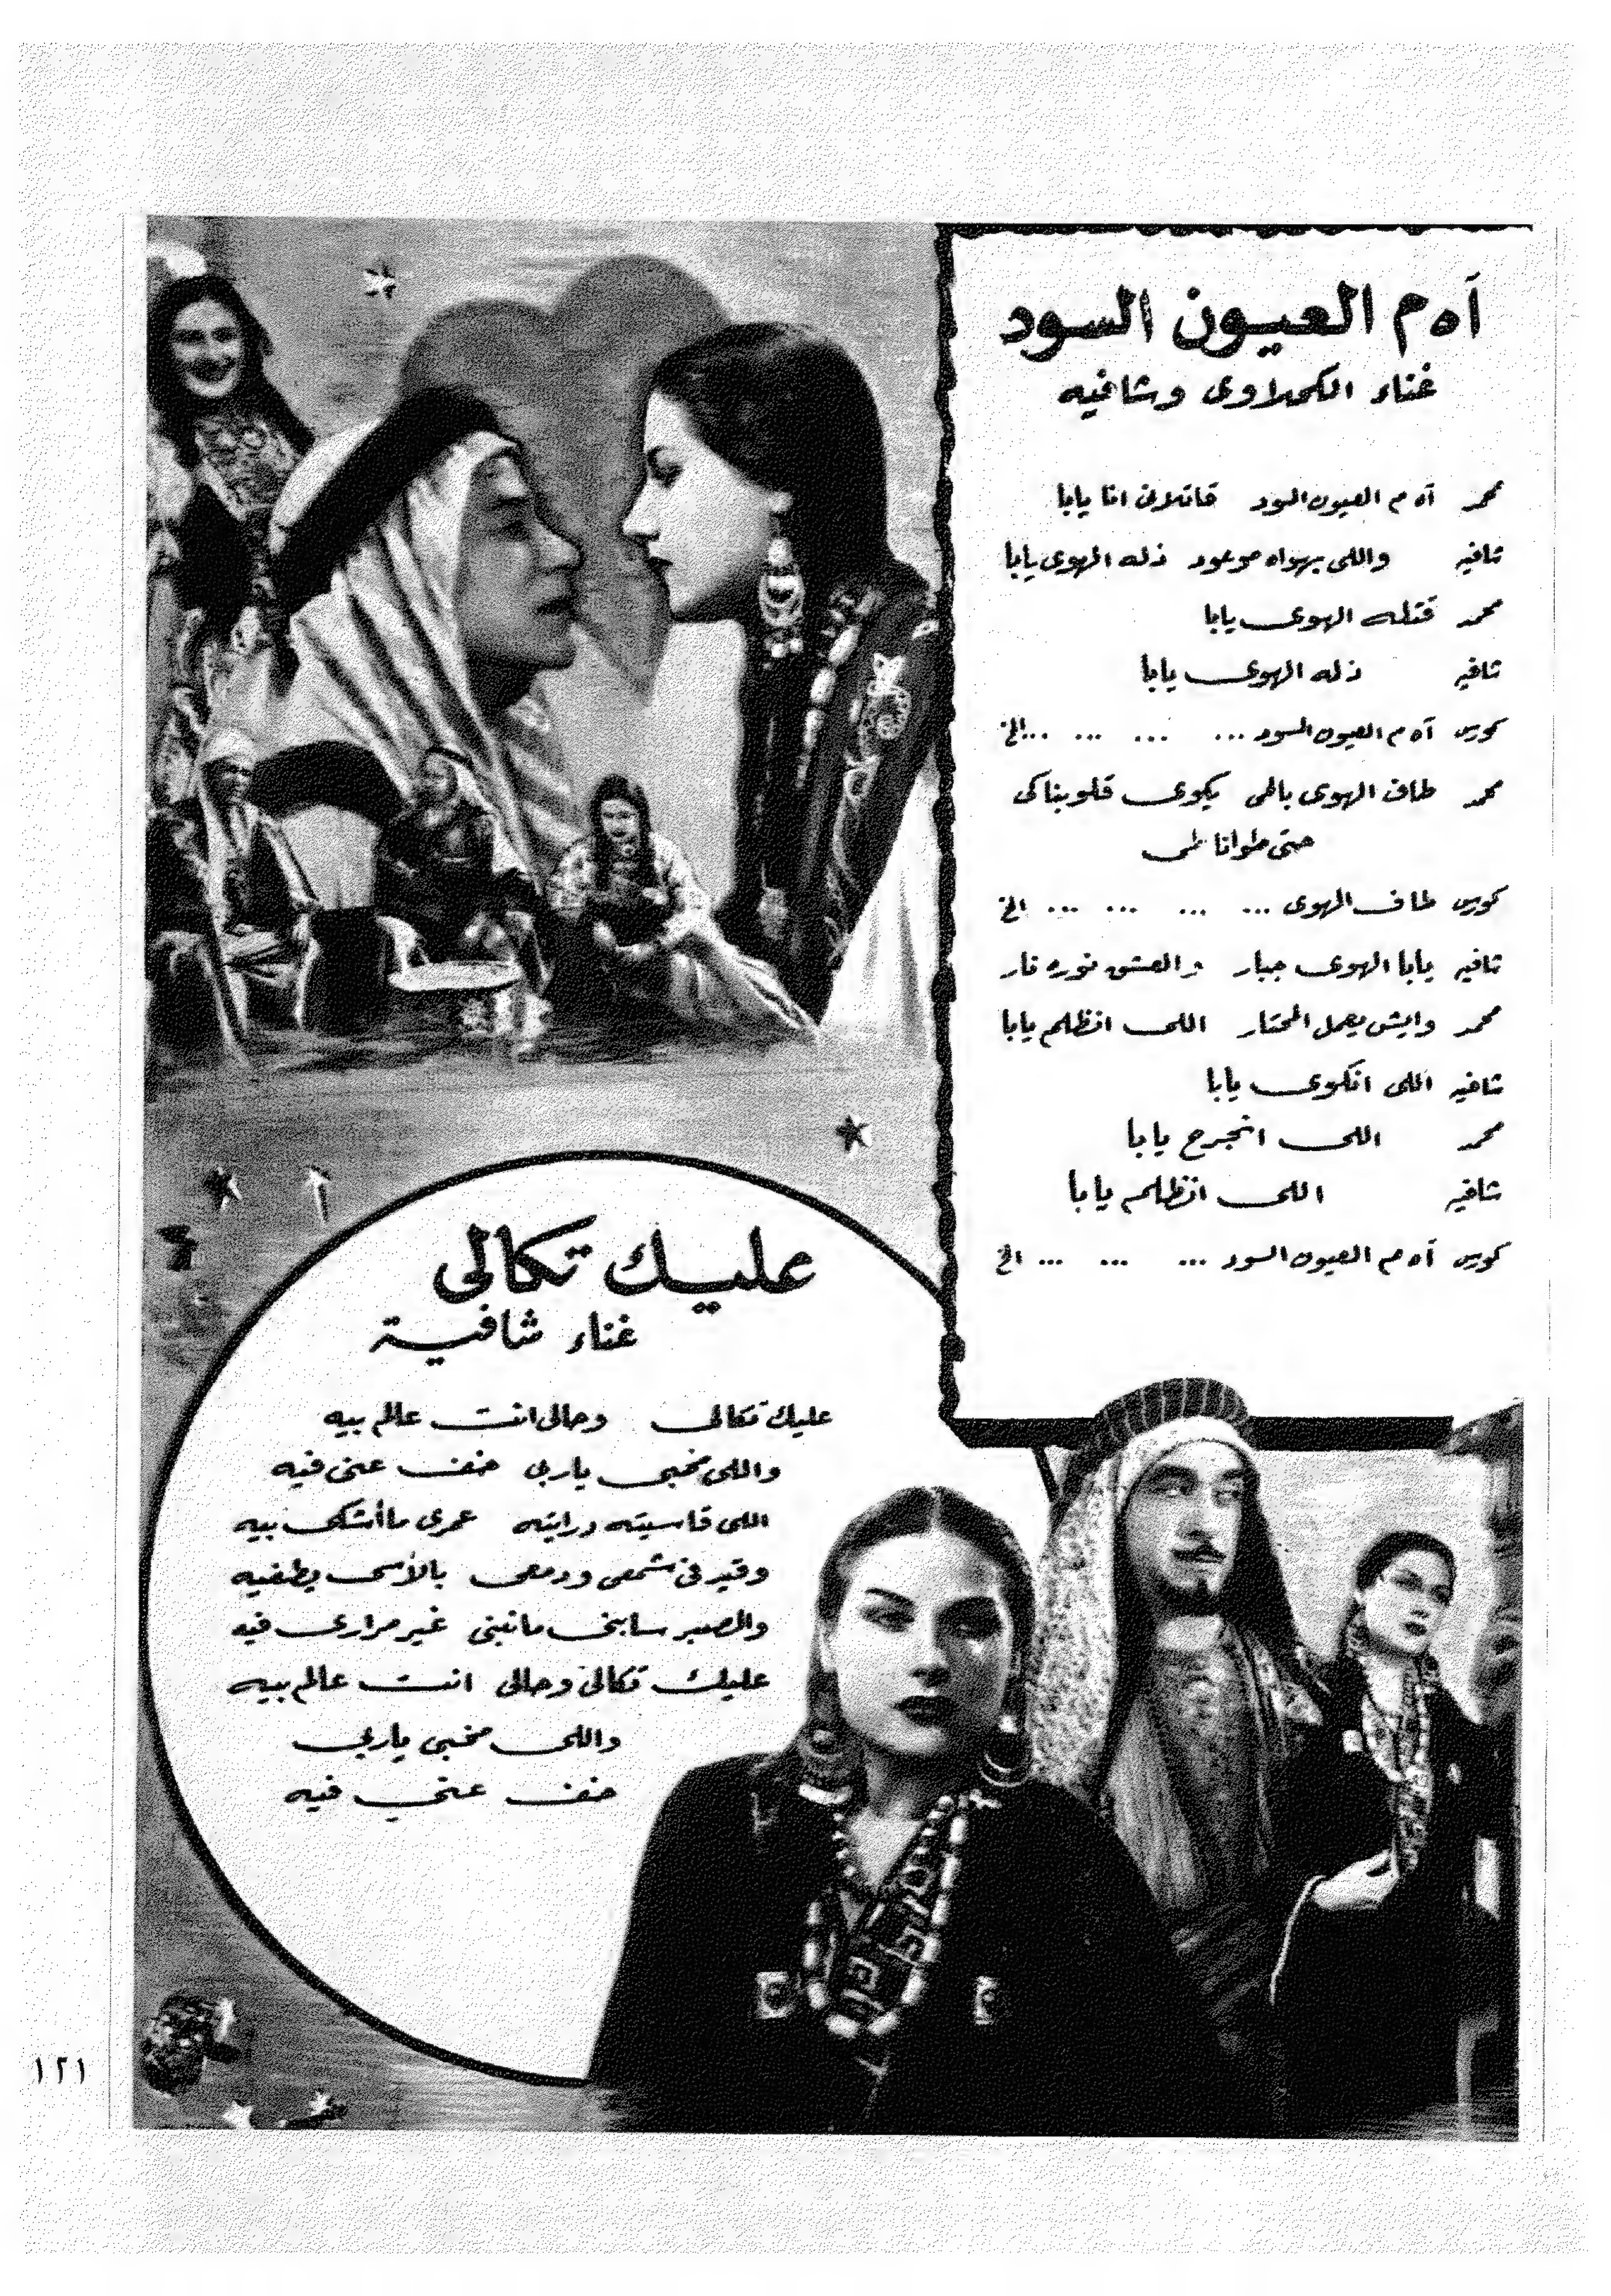 آه م العيون السود
غناء الكحلاوى وشافيه
محمد آه م العيون السود قاتلان انا يابا
شافيه واللى بهواه موعود ذله الهوى يابا
محمد قتله الهوى يابا
شافيه ذله الهوى يابا
كورس آه م العيون السود ... ... ... ...الخ
محمد طاف الهوى بالحى يكوى قلوبنا كى
حتى طوانا طى
كورس طاف الهوى ... ... ... ... الخ
شافيه يابا الهوى جبار والعشق نوره نار
محمد وايش يعمل المحتار اللى انظلم يابا
شافيه اللى انكوى يابا
محمد اللى انجرح يابا
شافيه اللى انظلم يابا
كورس آه م العيون السود ... ... ... الخ
عليك تكالى
غناء شافية
عليك تكالى وحالى انت عالم بيه
واللى مخبى ياربى خفف عنى فيه
اللى قاسيته ورايته عمرى ما أشكى بيه
وقيد فى شمعى ودمعى بالأسى يطفيه
والصبر سابنى مانبنى غير مرارى فيه
عليك تكالى وحالى انت عالم بيه
واللى مخبى ياربى
خفف عنى فيه
١٢١